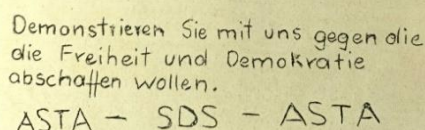 Demonstrieren Sie mit uns gegen die
die Freiheit und Demokratie
abschaffen wollen.
ASTA - SDS - ASTA